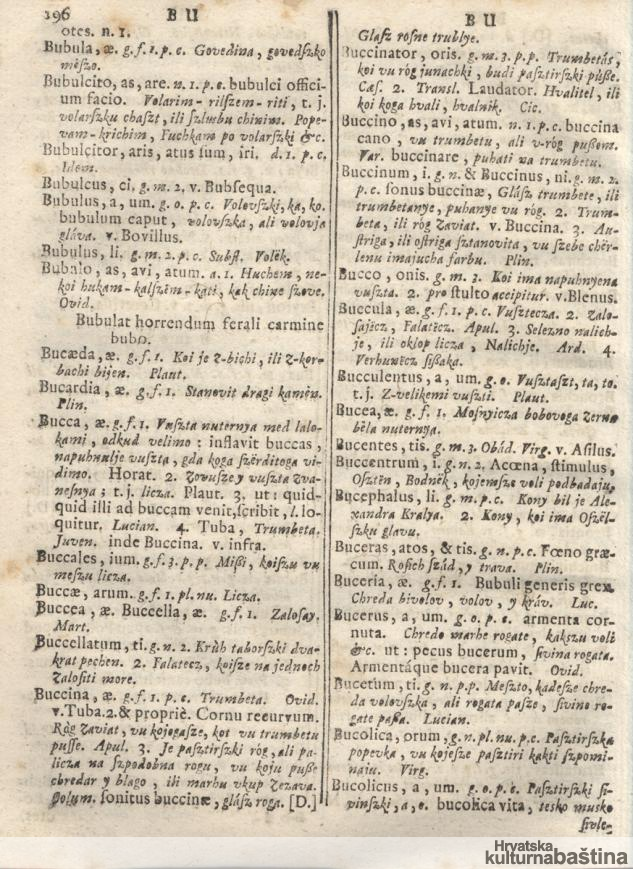 196 BU
otes. n. 1.
Bubula, æ. g. f. 1. p. c. Govedina, govedſzko
mèſzo.
Bubulcito, as, are. n. 1. p. c. bubulci offici-
um facio. Volarim-rilſzem-riti, t. j.
volarſzku chaſzt, ili ſzlusbu chinim. Pope-
vam-krichim, Fuchkam po volarſzki &c.
Bubulcitor, aris, atus ſum, iri. d. 1. p. c.
Idem.
Bubulcus, ci, g. m. 2, v. Bubſequa.
Bubulus, a, um. g. o. p. c. Volovſzki, ka, ko.
bubulum caput, volovſzka, ali volovja
gláva. v. Bovillus.
Bubulus, li. g. m. 2. p. c. Subſt. Volëk.
Bubalo, as, avi, atum. a. 1. Huchem, ne-
koi hukam-kalſzëm-kati, kak chine ſzove.
Ovid.
Bubulat horrendum ferali carmine
bubo.
Bucæda, æ. g. f. 1. Koi je z-bichi, ili z-kor-
bachi bijen. Plaut.
Bucardia, æ. g. f. 1. Stanovit dragi kamën.
Plin.
Bucca, æ. g. f. 1. Vuszta nuternya med lalo-
kami, odkud velimo: inflavit buccas,
napuhnulje vuszta, gda koga ſzërditoga vi-
dimo. Horat. 2. Zovuſze y vuszta zva-
neſnya; t. j. licza. Plaut. 3. ut: quid-
quid illi ad buccam venit, ſcribit, l. lo-
quitur. Lucian. 4. Tuba, Trumbeta.
Juven. inde Buccina. v. infra.
Buccales, ium. g. f. 3. p. p. Miſſi, koiſzu vu
meſzu licza.
Buccæ, arum. g. f. 1. pl. nu. Licza.
Buccea, æ. Buccella, æ. g. f. 1. Zalosay.
Mart.
Buccellatum, ti. g. n. 2. Krùh taborſzki dva-
krat pechen. 2. Falatecz, koiſze na jednoch
zaloſiti more.
Buccina, æ. g. f. 1. p. c. Trumbeta. Ovid.
v. Tuba. 2. & propriè. Cornu recurvum.
Ròg zaviat, vu kojogaſze, kot vu trumbetu
puſſe. Apul. 3. Je paſztirſzki róg, ali pa-
licza na ſzpodobna rogu, vu koju puſſe
chredar y blago, ili marhu vkup zezava.
ſonitus buccinæ, glász roga. [D.]
BU
Glasz roſne trublye.
Buccinator, oris. g. m. 3. p. p. Trumbetás,
koi vu ròg junachki, budi paſztirſzki pùſſe.
Cæſ. 2. Transl. Laudator. Hvalitel, ili
koi koga hvali, hvalnik. Cic.
Buccino, as, avi, atum. n. 1. p. c. buccina
cano, vu trumbetu, ali v-róg puſſem.
Var. buccinare, puhati va trumbetu.
Buccinum, i. g. n. & Buccinus, ni. g. m. 2.
p. c. ſonus buccinæ, Glász trumbete, ili
trumbetanye, puhanye vu róg. 2. Trum-
beta, ili róg zaviat. v. Buccina. 3. Au-
ſtriga, ili oſtriga ſztanovita, vu ſzebe chër-
lenu imajucha farbu. Plin.
Bucco, onis. g. m. 3. Koi ima napuhnyena
vuszta. 2. pro ſtulto accipitur. v. Blenus.
Buccula, æ. g. f. 1. p. c. Vusztecza. 2. Zalo-
sajëcz, Falatëcz. Apul. 3. Selezno nalich-
je, ili oklop licza, Nalichje. Ard. 4.
Verhunëcz ſiſſaka.
Bucculentus, a, um. g. o. Vusztaszt, ta, to.
t. j. Z-velikemi vuszti. Plaut.
Bucea, æ. g. f. 1. Moſnyicza bobovoga zerna
bëla nuternya.
Bucentes, tis. g. m. 3. Obád. Virg. v. Aſilus.
Buccentrum, i. g. n. 2. Acœna, ſtimulus,
Oſztën, Bodnëk, kojemſze voli podbadaju.
Bucephalus, li. g. m. p. c. Kony bil je Ale-
xandra Kralya. 2. Kony, koi ima Oſzël-
ſzku glavu.
Buceras, atos, & tis. g. n. p. c. Fœno græ-
cum. Roſich szád, y trava. Plin.
Bucería, æ. g. f. 1. Bubuli generis grex
Chreda bivolov, volov, y kráv. Luc.
Bucerus, a, um. g. o. p. c. armenta cor-
nuta. Chredo marhe rogate, kakszu voli
&c. ut: pecus bucerum, ſivina rogata.
Armentáque bucera pavit. Ovid.
Bucetum, ti. g. n. p. p. Meſzto, kadeſze chre-
da volovſzka, ali rogata paſze, ſivine ro-
gate paſſa. Lucian.
Bucolica, orum, g. n. pl. nu. p. c. Paſztirſzka
popevka, vu kojeſze paſztiri kakti ſzpomi-
naju. Virg.
Bucolicus, a, um. g. o. p. c. Paſztirſzki ſi-
pinſzki, a, o. bucolica vita, tesko musko
ſivle-
Hrvatska
kulturnabaština